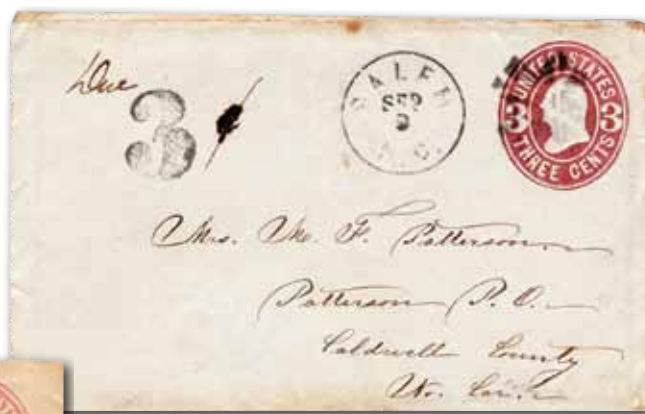 Due
3
SALEM
SEP
9
N.C.
UNITED STATES
3 3
THREE CENTS
Mrs. M. F. Patterson
Patterson P. O.
Caldwell County
No. Car.